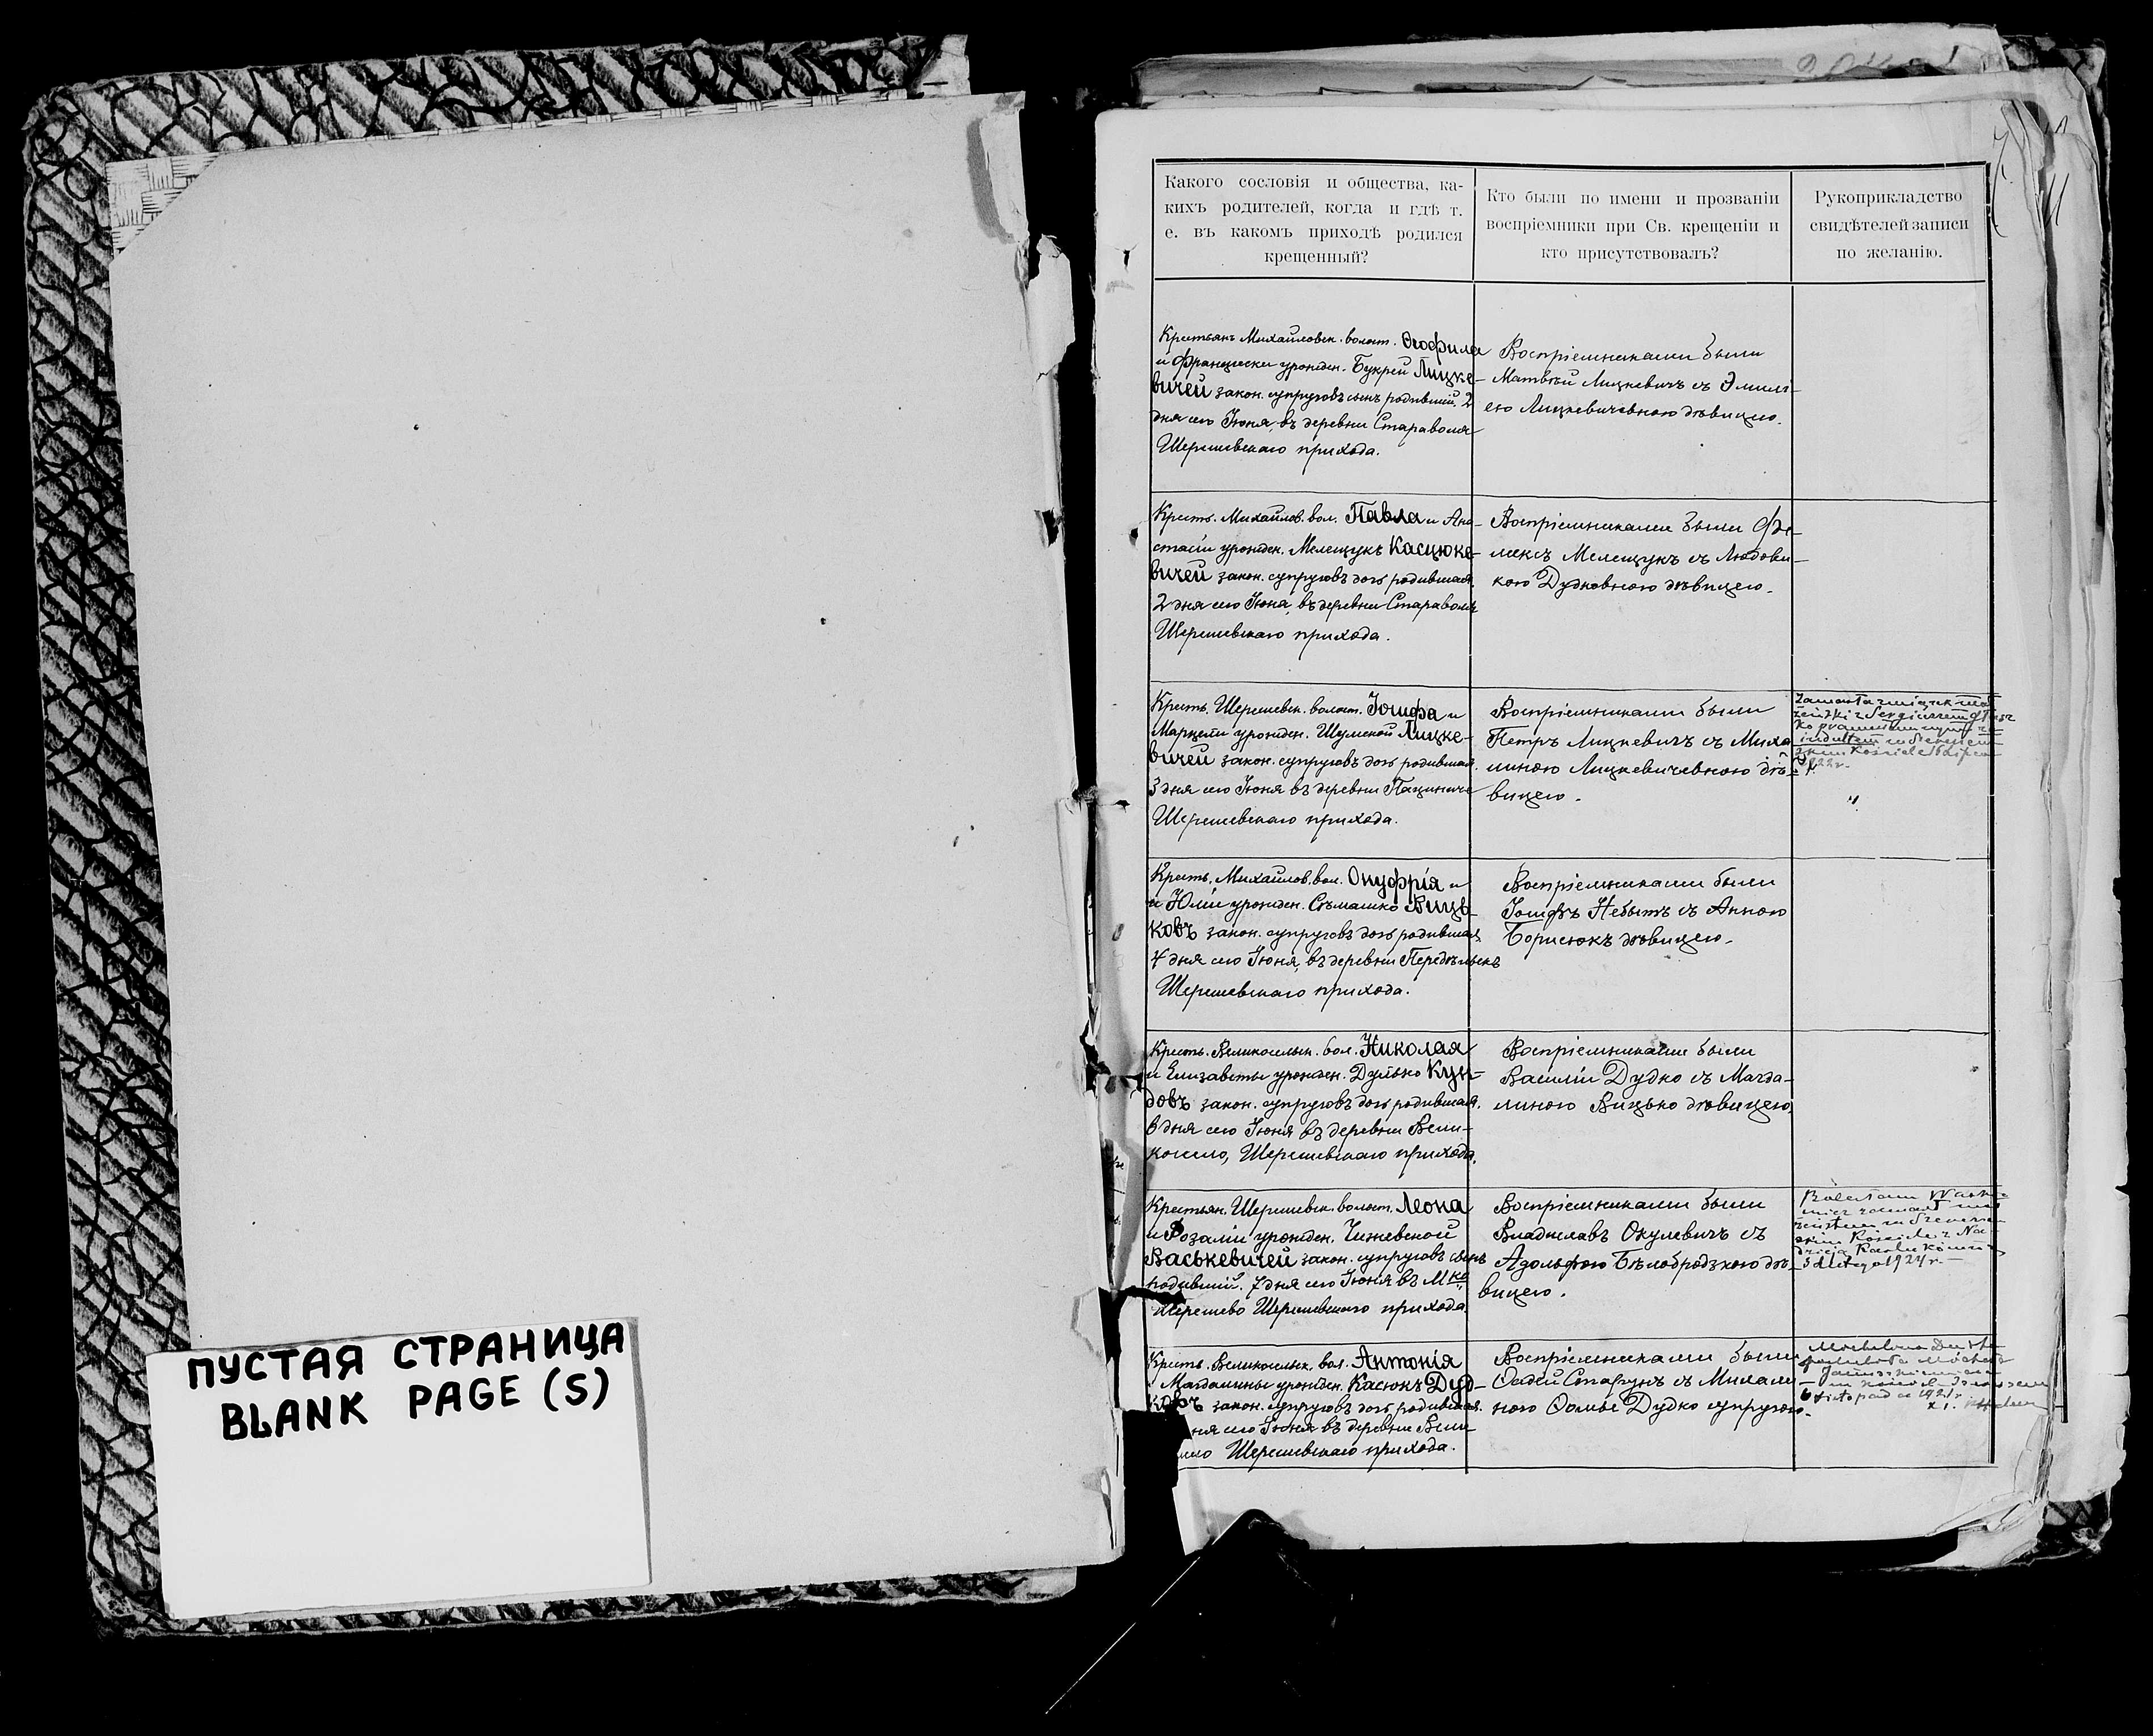 ПУСТАЯ СТРАНИЦА
BLANK PAGE (S)
Какого сословія и общества, ка-
кихъ родителей, когда и гдѣ т.
е. въ какомъ приходѣ родился
крещенный?
Кто были по имени и прозваніи
воспріемники при Св. крещеніи и
кто присутствовалъ?
Рукоприкладство
свидѣтелей записи
по желанію.
Крестьянъ Михайловск. волост. Ѳеофила
и Франциски урожден. Букрей Лицке-
вичей закон. супруговъ сынъ родивший. 2
дня сего Іюня, въ деревни Стараволя
Шерешевскаго прихода.
Воспріемниками были
Матвѣй Лицкевичъ съ Эмилі-
ею Лицкевичевною дѣвицею.
Кресть. Михайлов. вол. Павла и Ана-
стасіи урожден. Мелещукъ Касцюке-
вичей закон. супруговъ дочь родившая.
2 дня сего Іюня, въ деревни Стараволя
Шерешевскаго прихода.
Воспріемниками были Фе-
ликсъ Мелещукъ съ Людови-
кою Дудковною дѣвицею.
Кресть. Шерешевск. волост. Іосифа и
Марцели урожден. Шумской Лицке-
вичей закон. супруговъ дочь родившая.
3 дня сего Іюня въ деревни Пациничи
Шерешевскаго прихода.
Воспріемниками были
Петръ Лицкевичъ съ Миха-
линою Лицкевичевною дѣ-
вицею.
1922 r.
Кресть. Михайлов. вол. Онуфрія и
и Юліи урожден. Сѣмашко Вицъ-
ковъ закон. супруговъ дочь родившая
4 дня сего Іюня, въ деревни Передѣльскъ
Шерешевскаго прихода.
Воспріемниками были
Іосифъ Небытъ съ Анною
Борисюкъ дѣвицею.
Кресть. Великосельск. вол. Николая
и Елизаветы урожден. Дулько Кун-
довъ закон. супруговъ дочь родившая.
6 дня сего Іюня въ деревни Вели-
косело, Шерешевскаго прихода.
Воспріемниками были
Василій Дудко съ Магда-
линою Вицько дѣвицею.
Крестьян. Шерешевск. волост. Леона
и Розаліи урожден. Чижевской
Васькевичей закон. супруговъ сынъ
родивший. 7 дня сего Іюня въ Мкѣ
Шерешево Шерешевскаго прихода
Воспріемниками были
Владиславъ Окулевичъ съ
Адольфою Бѣлобродзкою дѣ-
вицею.
1924 r.
Кресть. Великосельск. вол. Антонія
Магдалины урожден. Касюкъ Дуд-
ковъ закон. супруговъ дочь родившая.
дня сего Іюня въ деревни Вели
село Шерешевскаго прихода.
Воспріемниками были
Ѳадей Стафунъ съ Михали-
ною Ѳомы Дудко супругою.